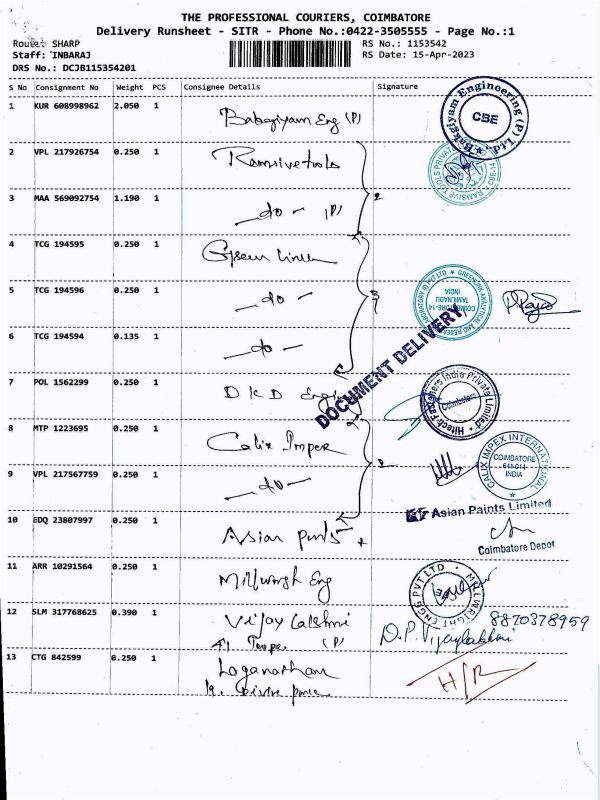 THE PROFESSIONAL COURIERS, COIMBATORE
Delivery Runsheet - SITR - Phone No.:0422-3505555 - Page No.:1
Route: SHARP
Staff: INBARAJ
DRS No.: DCJB115354201
RS No.: 1153542
RS Date: 15-Apr-2023
S No Consignment No Weight PCS Consignee Details Signature
1 KUR 608998962 2.050 1 Bakgiyam Eng (P)
Bakgiyam Engineering (P) Ltd.
CBE
2 VPL 217926754 0.250 1 Ramsive tools
3 MAA 569092754 1.190 1 - do - (P)
2
4 TCG 194595 0.250 1 Green Link
5 TCG 194596 0.250 1 - do -
3
GREENLINK ANALYTICAL AND RESEARCH LABORATORY (I) PVT LTD
COIMBATORE-14
TAMILNADU
INDIA
6 TCG 194594 0.135 1 - do -
DOCUMENT DELIVERY
7 POL 1562299 0.250 1 DKD Engg
Coimbatore
8 MTP 1223695 0.250 1 Calix Impex
CALIX IMPEX INTERNATIONAL
COIMBATORE
641-014
INDIA
9 VPL 217567759 0.250 1 - do -
2
Asian Paints Limited
10 EDQ 23807997 0.250 1 Asian paints
Coimbatore Depot
11 ARR 10291564 0.250 1 Millwright Eng
MILLWRIGHT ENGG PVT LTD
12 SLM 317768625 0.390 1 Vijay Lakshmi
(P)
8870378959
D.P. Vijaylakhmi
13 CTG 842599 0.250 1 Loganathan
H/R